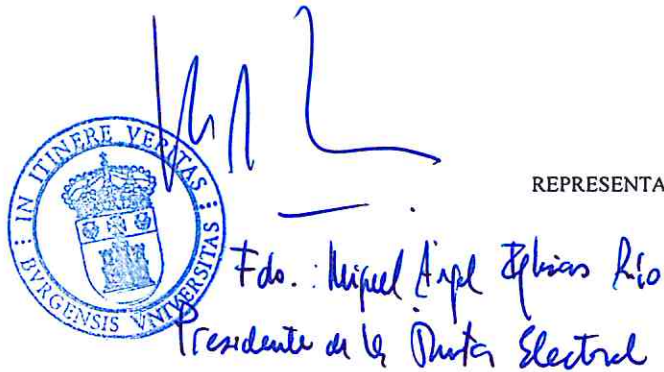 IN ITINERE VERITAS
BVRGENSIS VNIVERSITAS
REPRESENTA
Fdo.: Miguel Ángel Iglesias Río
Presidente de la Junta Electoral